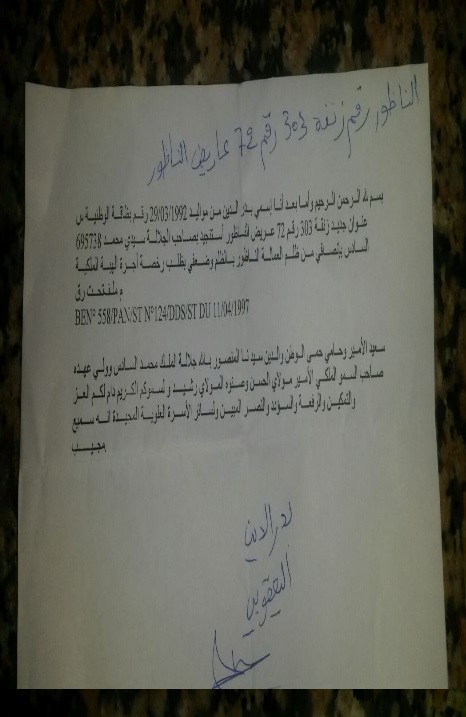 الناظور رقم زنقة 303 رقم 72 عاريض الناظور
بسم لله الرحمن الرحيم وأما بعد أنا إسمي بدر الدين من مواليد 29/03/1992 رقم بطاقة الوطنية س
695738 عنوان جديد زنقة 303 رقم 72 عريض الناظور أستنجد بصاحب الجلالة سيدي محمد
السادس ينصافي من ظلم العمالة الناظور بالظلم وضعفي بطلب رخصة أجرة الهبة الملكية
م ملف تحت رق
BEN° 558/PAN/ST N°124/DDS/ST DU 11/04/1997
سعيد الأمير وحامي حمى الوطن والدين سيدنا المنصور بالله جلالة الملك محمد السادس وولي عهده
صاحب السمو الملكي الأمير مولاي الحسن وصنوه المولاي رشيد ولسموكم الكريم دام لكم العز
والتمكين والرفعة والسؤدد والنصر المبين ولسائر الأسرة العلوية المجيدة انه سميع
مجيب
بدر الدين
اليعقوبي